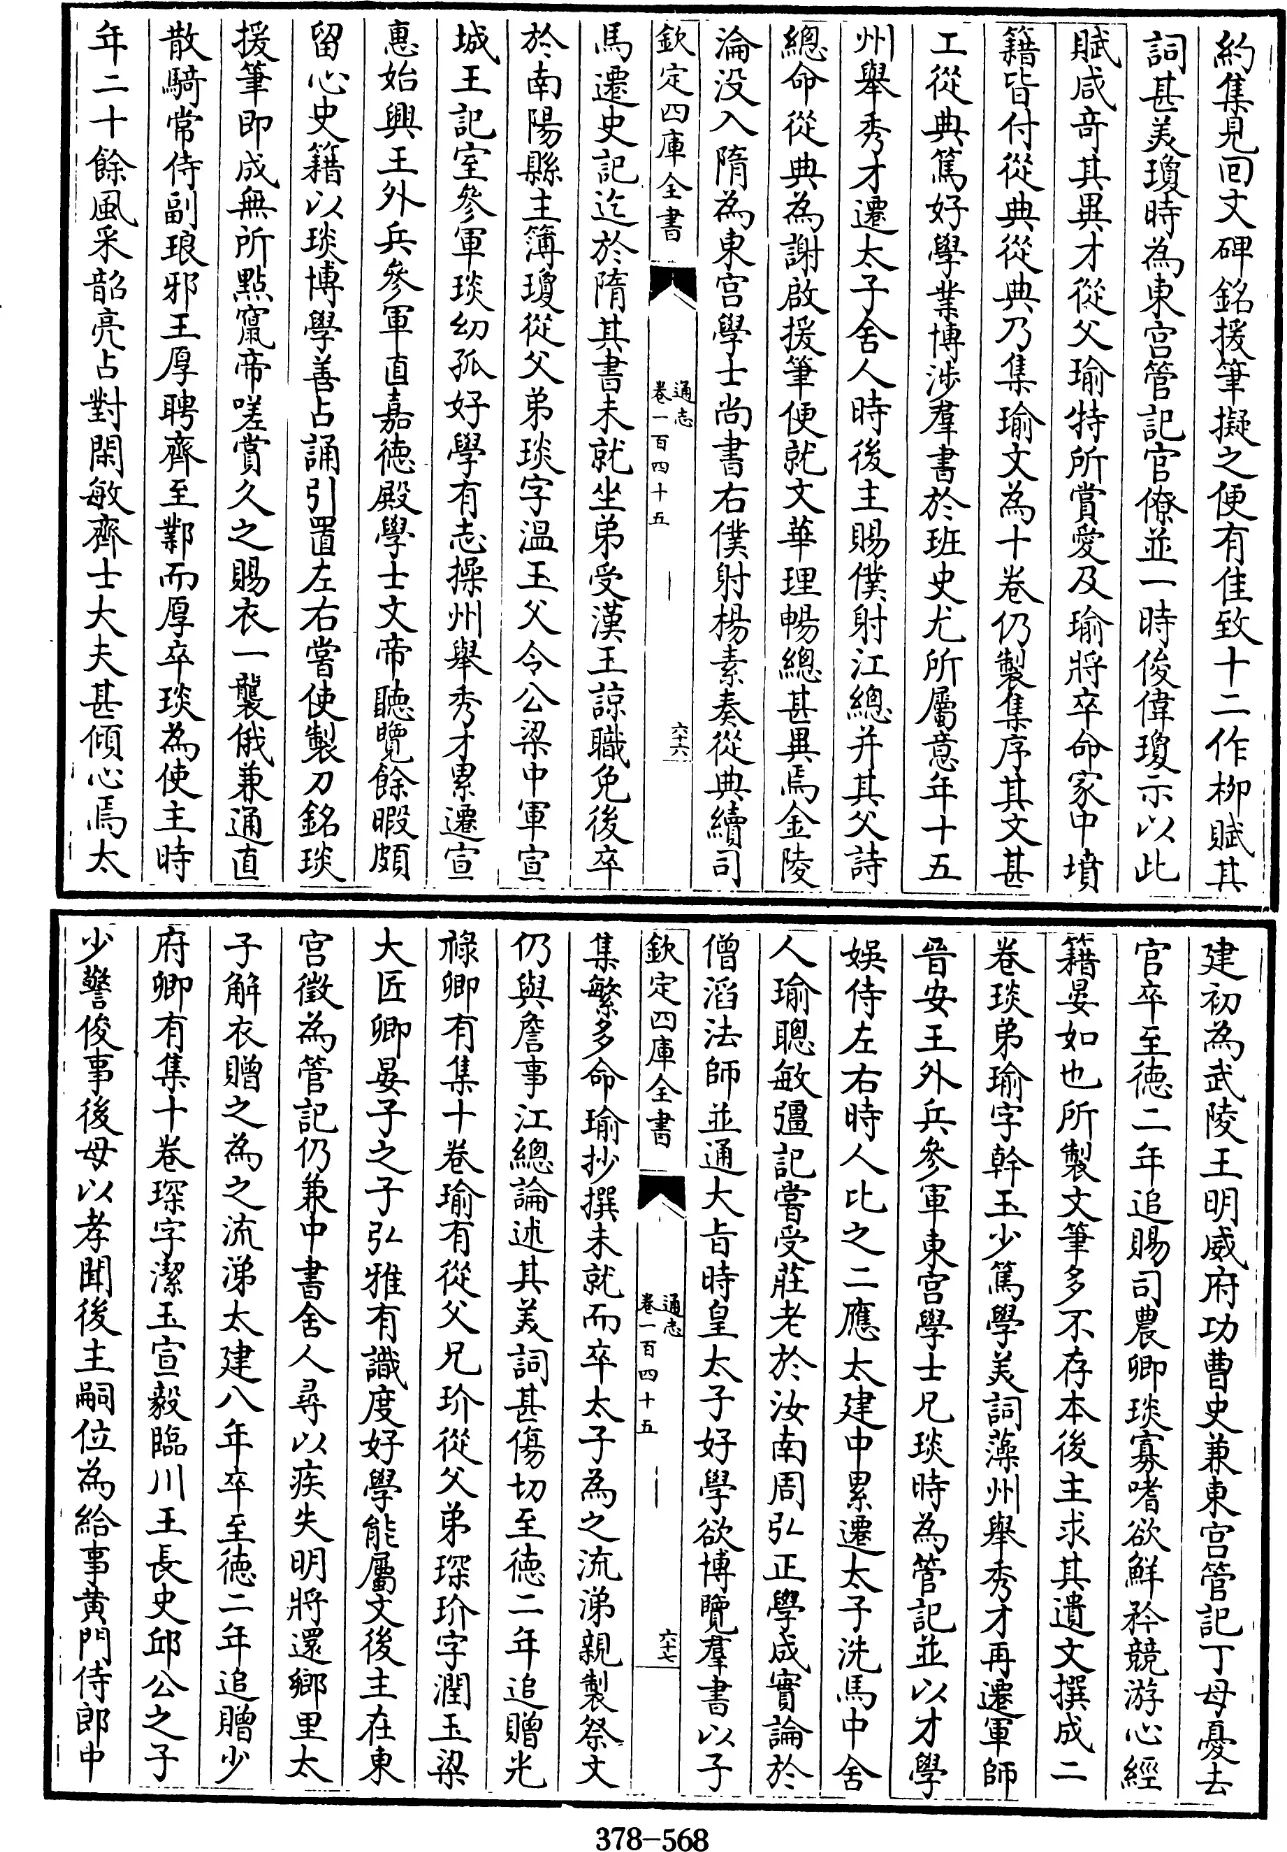 約集見回文碑銘援筆擬之便有佳致十二作栁賦其
詞甚美瓊時為東宮管記官僚並一時俊偉瓊示以此
賦咸竒其異才從父瑜特所賞愛及瑜將卒命家中墳
籍皆付從典從典乃集瑜文為十卷仍製集序其文甚
工從典篤好學業博涉羣書於班史尤所屬意年十五
州舉秀才遷太子舍人時後主賜僕射江總并其父詩
總命從典為謝啟援筆便就文華理暢總甚異焉金陵
淪没入隋為東宮學士尚書右僕射楊素奏從典續司
欽定四庫全書
通志
卷一百四十五
六十六
馬遷史記迄於隋其書未就坐弟受漢王諒職免後卒
於南陽縣主簿瓊從父弟琰字溫玉父令公梁中軍宣
城王記室參軍琰幼孤好學有志操州舉秀才累遷宣
惠始興王外兵參軍直嘉德殿學士文帝聽覽餘暇頗
留心史籍以琰博學善占誦引置左右嘗使製刀銘琰
援筆即成無所點竄帝嗟賞久之賜衣一襲俄兼通直
散騎常侍副琅邪王厚聘齊至鄴而厚卒琰為使主時
年二十餘風采韶亮占對閑敏齊士大夫甚傾心焉太
建初為武陵王明威府功曹史兼東宮管記丁母憂去
官卒至德二年追賜司農卿琰寡嗜欲鮮矜競游心經
籍晏如也所製文筆多不存本後主求其遺文撰成二
卷琰弟瑜字幹玉少篤學美詞藻州舉秀才再遷軍師
晉安王外兵參軍東宮學士兄琰時為管記並以才學
娛侍左右時人比之二應太建中累遷太子洗馬中舍
人瑜聰敏彊記嘗受莊老於汝南周弘正學成實論於
僧滔法師並通大旨時皇太子好學欲博覽羣書以子
欽定四庫全書
通志
卷一百四十五
六十七
集繁多命瑜抄撰未就而卒太子為之流涕親製祭文
仍與詹事江總論述其美詞甚傷切至德二年追贈光
祿卿有集十卷瑜有從父兄玠從父弟琛玠字潤玉梁
大匠卿晏子之子弘雅有識度好學能屬文後主在東
宮徵為管記仍兼中書舍人尋以疾失明將還鄉里太
子解衣贈之為之流涕太建八年卒至德二年追贈少
府卿有集十卷琛字潔玉宣毅臨川王長史邱公之子
少警俊事後母以孝聞後主嗣位為給事黃門侍郎中
378-568